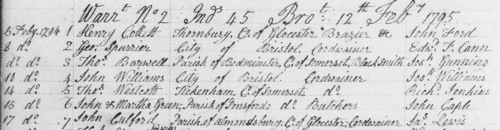 Warrt. No 2 Ind 45 Brot. 12th Feby 1795
5 Feby. 1794 1 Henry Collett Thornbury, C. of Glocester Brazier &c John Ford
8 do. 2 Geo. Spurrier City of Bristol Cordwainer Edwd. T. Cann
do do. 3 Thos. Barwell Parish of Bedminster, C. of Somerset, Black Smith Jos. Gunning
10 do. 4 John Williams City of Bristol. Cordwainer Jos. Williams
14 do 5 Thos. Westcott Tickenham, C. of Somerset do. Richd. Jenkins
16 do 6 John & Martha Green; Parish of do. Butchers John Cable
17 do. 7 John Parish of Almondsbury; C. of Glocester; Cordwainer Jas. Lewis